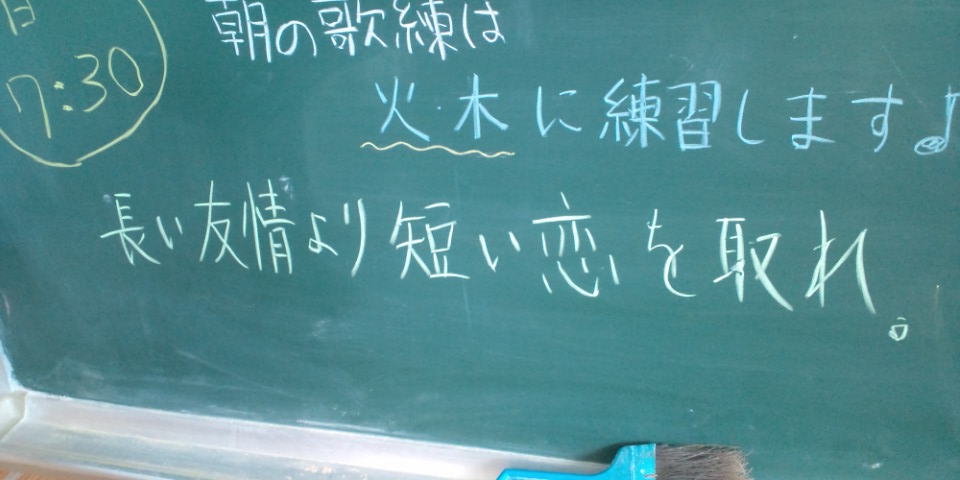 7:30
朝の歌練は
火・木に練習します♪
長い友情より短い恋を取れ。